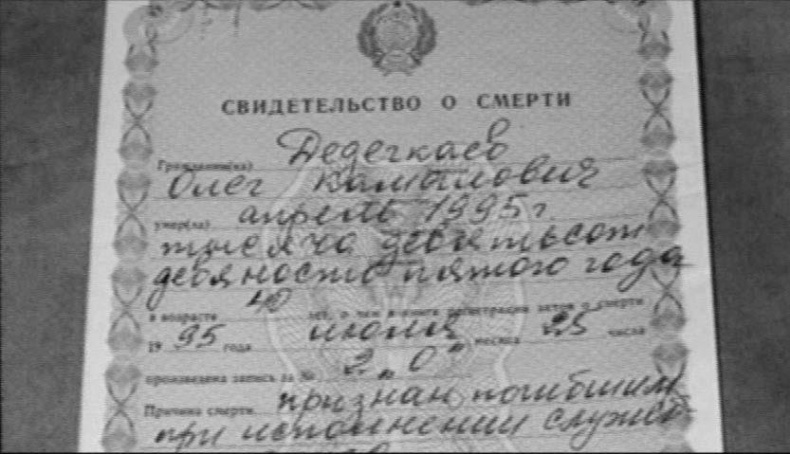 СВИДЕТЕЛЬСТВО О СМЕРТИ
Гражданин(ка) Дедегкаев
Олег Камылович
умер(ла) апрель 1995 г.
тысяча девятьсот
девяносто пятого года
в возрасте 40 лет, о чем в книге регистрации актов о смерти
19 95 года июля месяца 25 числа
произведена запись за № 2 „0"
Причина смерти признан погибшим
при исполнении служеб-